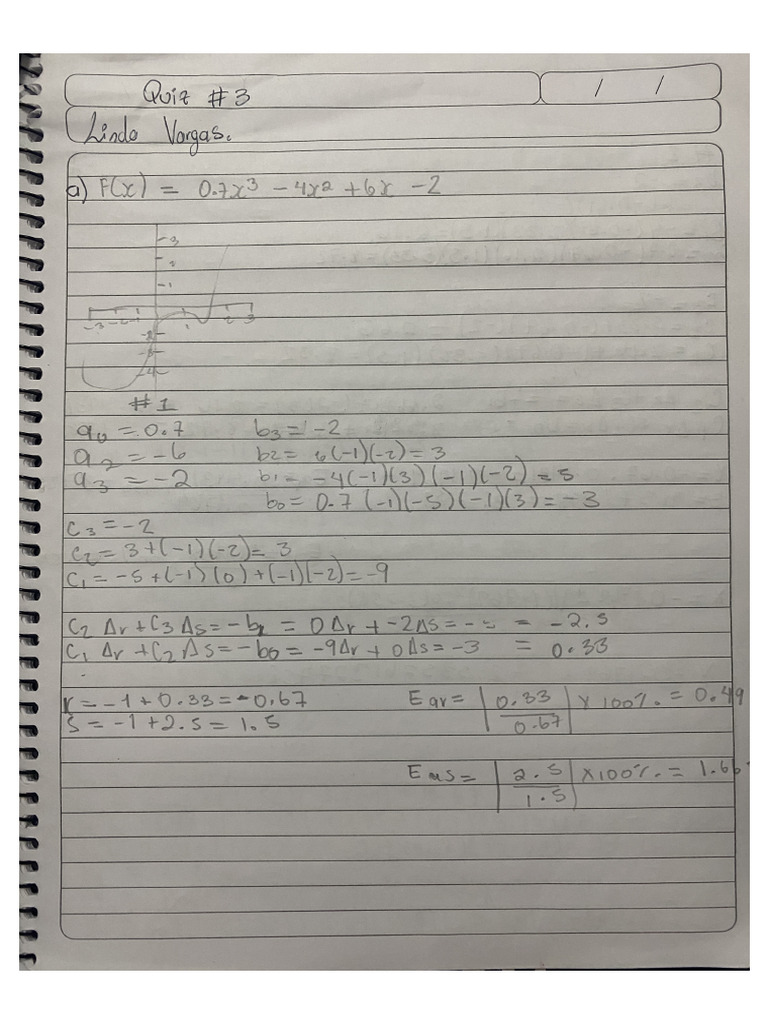 Quiz #3
/ /
Linda Vargas.
a) F(x) = 0.7x³ - 4x² + 6x - 2
3
2
1
-3 -2 -1 1 2 3
-2
-3
-4
#1
a₀ = 0.7 b₃ = -2
a₂ = -6 b₂ = 6(-1)(-2) = 3
a₃ = -2 b₁ = -4(-1)(3)(-1)(-2) = 5
b₀ = 0.7(-1)(-5)(-1)(3) = -3
c₃ = -2
c₂ = 3+(-1)(-2) = 3
c₁ = -5+(-1)(0)+(-1)(-2) = -9
c₂ Δr + c₃ Δs = -b₁ = 0Δr + -2Δs = -5 = -2.5
c₁ Δr + c₂ Δs = -b₀ = -9Δr + 0Δs = -3 = 0.33
r = -1 + 0.33 = -0.67 Ear = |0.33/0.67| x 100% = 0.49
s = -1 + 2.5 = 1.5
Eas = |2.5/1.5| x 100% = 1.66